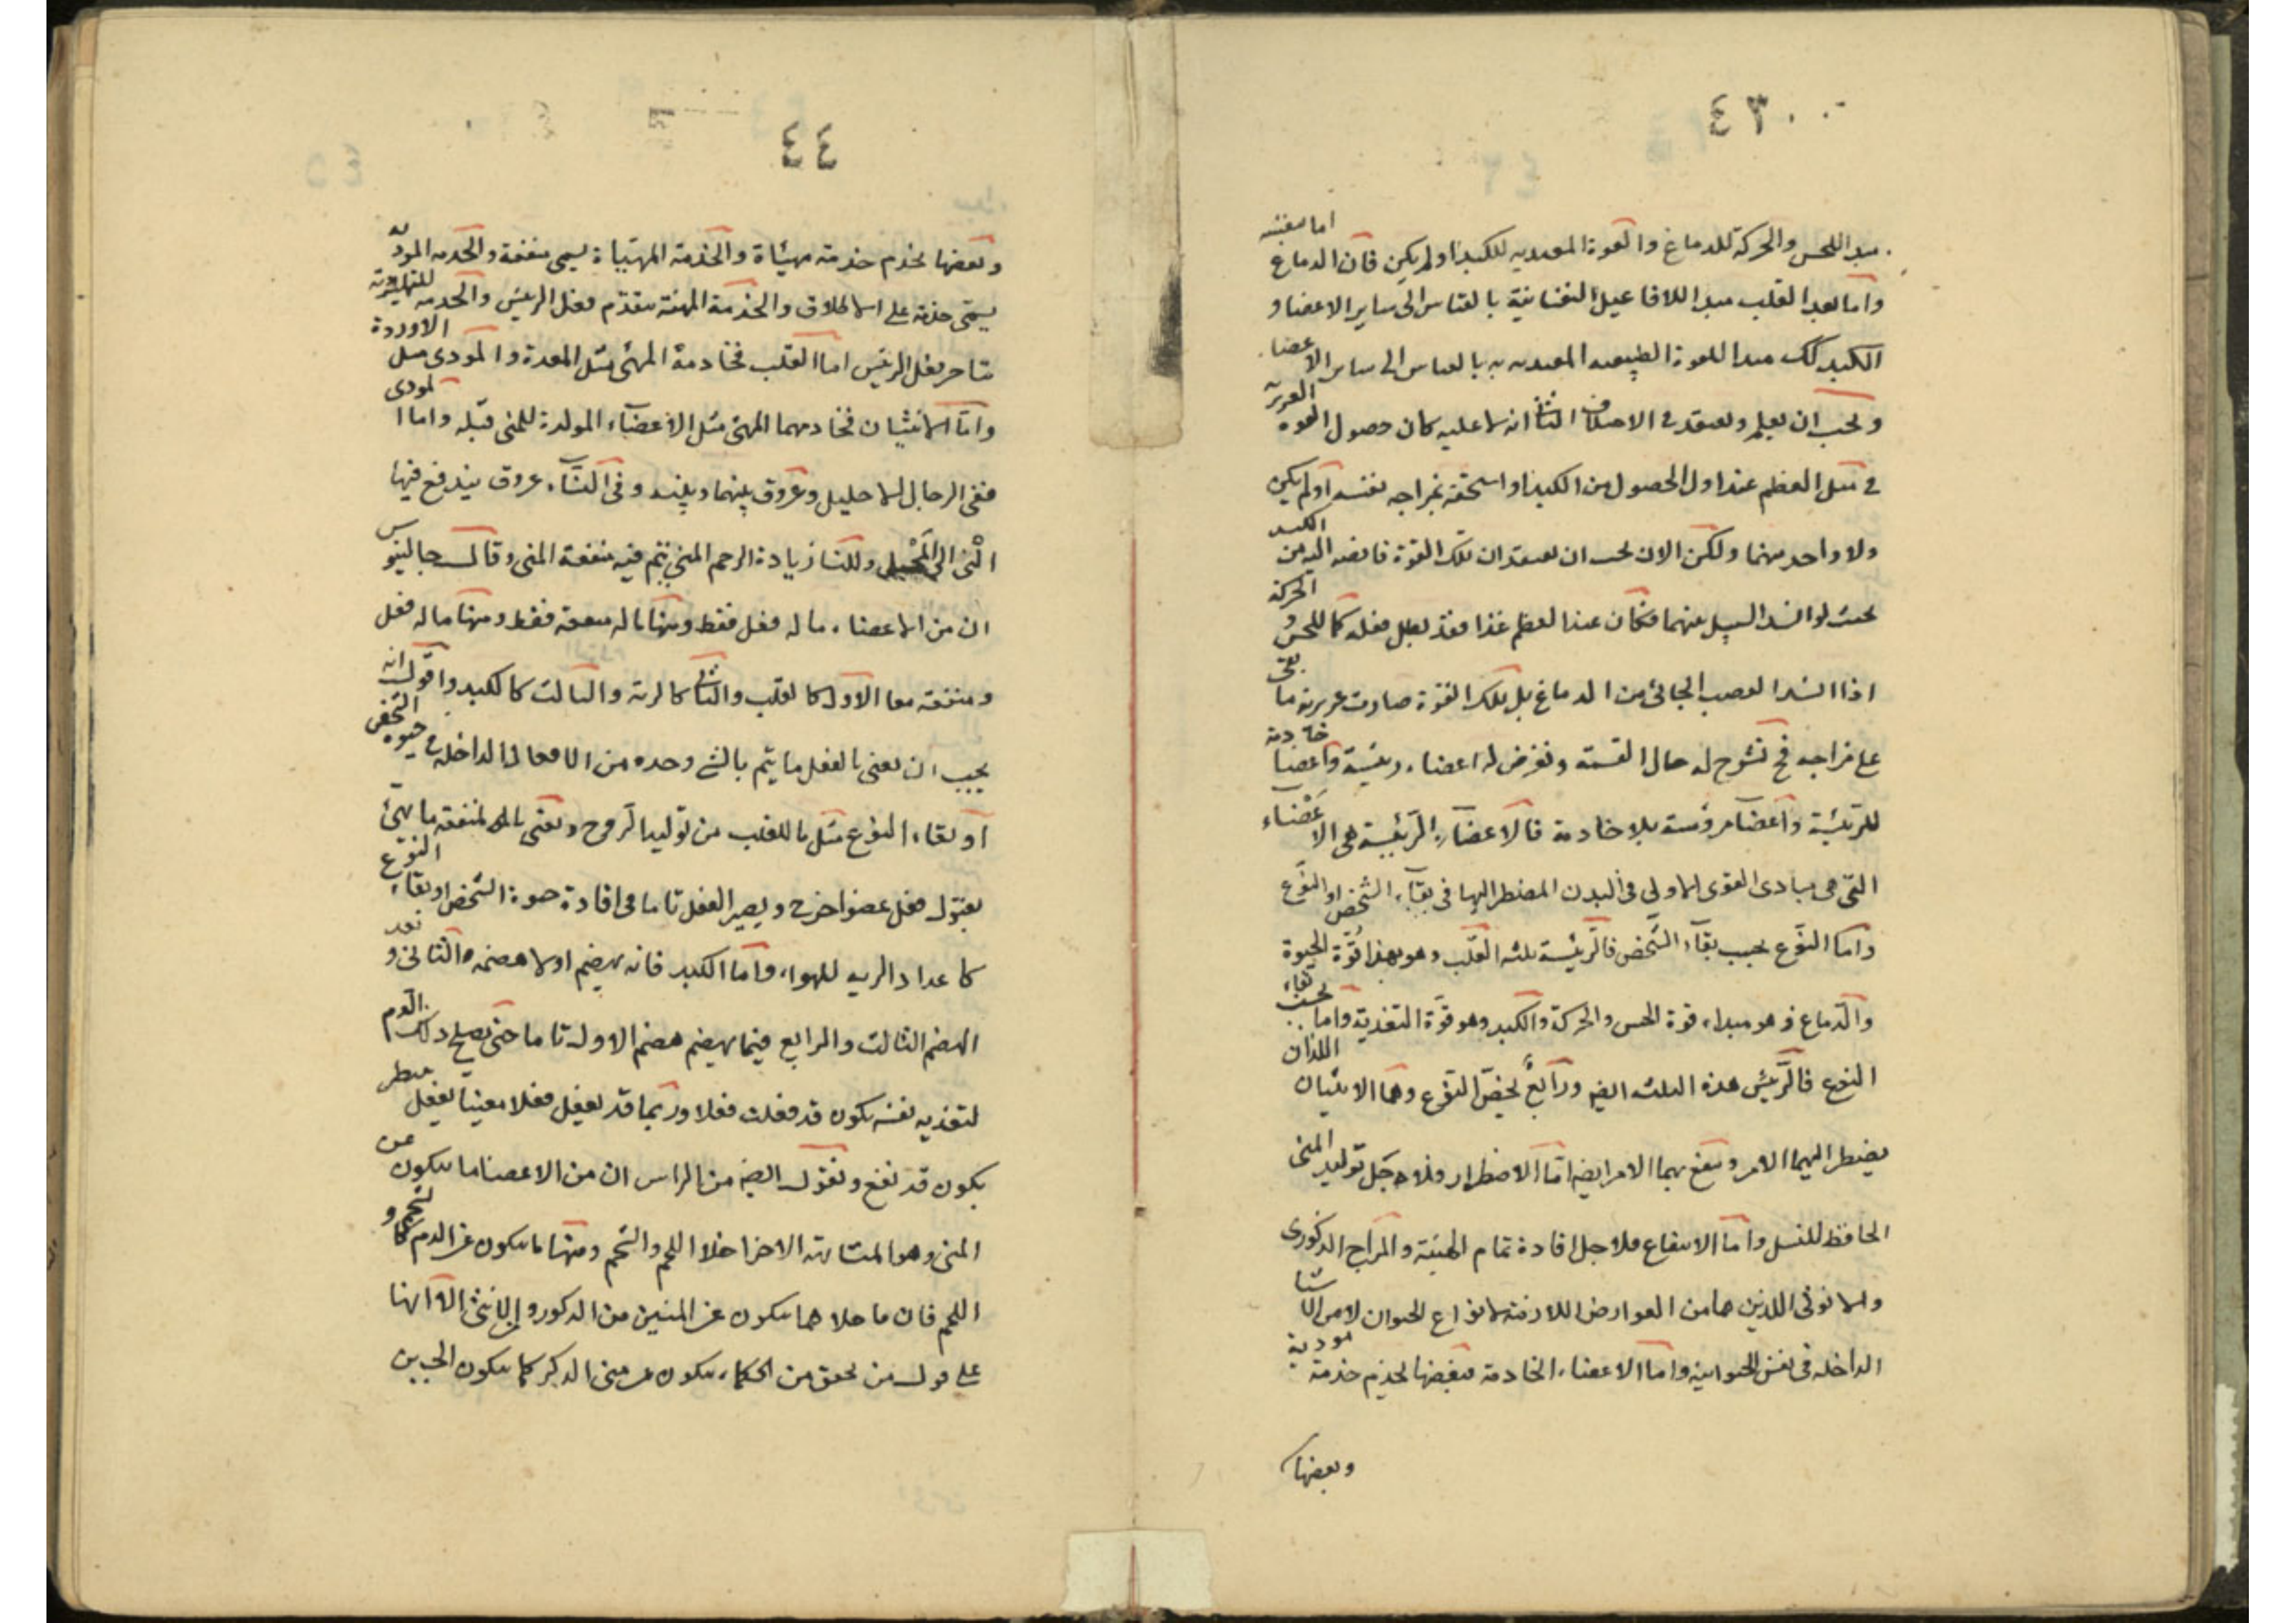 ٤٣
مبدا للحس والحركة للدماغ والقوة المغذيه للكبد او لم يكن فان الدماغ اما بنفسه
واما بعد القلب مبدا للافاعيل النفسانية بالقياس الى ساير الاعضا و
الكبد كك مبدا للقوة الطبيعيه المغذيه بالقياس الى ساير الاعضا
ويجب ان يعلم ويعتقد في الاختلاف الثانى انه لا عليه كان حصول القوه الغريزيه
في مثل العظم عند اول الحصول من الكبد او استحقه بمزاجه نفسه او لم يكن
ولا واحد منهما ولكن الان يجب ان يعتقد ان تلك القوة فايضه اليه من الكبد
بحيث لو انسد السبيل بينهما فكان عند العظم غذا معد بطل فعله كما للحس و الحركة
اذا انسد العصب الجائى من الدماغ بل تلك القوة صارت غريزيه ما بقى
على مزاجه فح تشرح له حال القسمة وتفرض له اعضاء رئيسة واعضا خادمة
للرئيسة واعضا مروسة بلا خادمة فالاعضاء الرئيسة هى الاعضاء
التى هى مبادى القوى الاولى فى البدن المضطر اليها فى بقاء الشخص او النوع
واما النوع بحسب بقاء الشخص فالرئيسة ثلثه القلب وهو بهذا قوة الحيوة
والدماغ وهو مبداء قوة الحس والحركة والكبد وهو قوة التغذية واما بحسب بقاء
النوع فالرئيس هذه الثلثه ايضه ورابع يخص النوع وهما الانثيان اللذان
يضطر اليهما الامر وينتفع بهما الامر ايضه اما الاضطرار فلاجل توليد المنى
الحافظ للنسل واما الانتفاع فلاجل افادة تمام الهيئة والمزاج الذكورى
والانوثى اللذين هما من العوارض اللازمة لانواع الحيوان لا من الاشيا
الداخله فى نفس الحيوانيه واما الاعضاء الخادمة فبعضها يخدم خدمة مودية
وبعضها
٤٤
وبعضها يخدم خدمة مهيئاة والخدمة المهيئاة يسمى منفعة والخدمه المودية
يسمى خدمة على الاطلاق والخدمة المهيئة يتقدم فعل الرئيس والخدمه
يتاخر فعل الرئيس اما القلب فخادمة المهئ مثل المعدة والمودى مثل الاوردة
واما الانثيان فخادمهما المهئ مثل الاعضاء المولدة للمنى قبله واما المودى
ففى الرجال الاحليل وعروق بينهما وبينه وفى النساء عروق يندفع فيها
المنى الى المحبل وللنسا زيادة الرحم المنى يتم فيه منفعة المنى وقال جالينوس
ان من الاعضاء ما له فعل فقط ومنها ما له منفعة فقط ومنها ما له فعل
ومنفعة معا الاول كالقلب والثانى كالرئه والثالث كالكبد واقول انه
يجب ان يعنى بالفعل ما يتم بالشى وحده من الافعال الداخله فى حيوه الشخص
او بقاء النوع مثل ما للقلب من توليد الروح ويعنى بالمنفعه ما يهئ
بقبول فعل عضو اخر ح ويصير الفعل تاما فى افادة حيوة الشخص او بقاء النوع
كاعداد الريه للهواء واما الكبد فانه يهضم اولا هضمه الثانى و يعد
الهضم الثالث والرابع فيما يهضم هضم الاول تاما حتى يصلح ذلك الدم
لتغذيه نفسه يكون قد فعلت فعلا وربما قد يفعل فعلا معينا لفعل منتظر
يكون قد نفع ونقول ايضه من الراس ان من الاعضا ما يتكون عن
المنى وهو المتشابهه الاجزا خلا اللحم والشحم ومنها ما يتكون عن الدم كالشحم و
اللحم فان ما خلاهما يتكون عن المنيين من الذكور و الانثى الا انها
على قول من تحقق من الحكماء يتكون عن منى الذكر كما يتكون الجبن